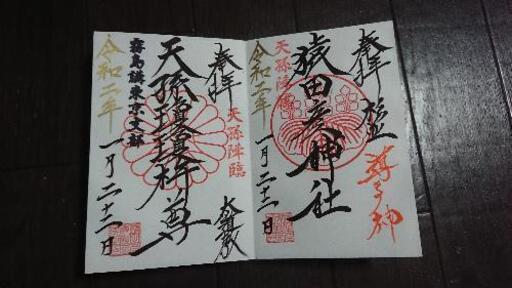 奉拝
導き神
猿田彦神社
天孫降臨
令和二年
一月二十二日
奉拝
天孫降臨
天孫瓊瓊杵尊
霧島講東京支部
令和二年
一月二十二日